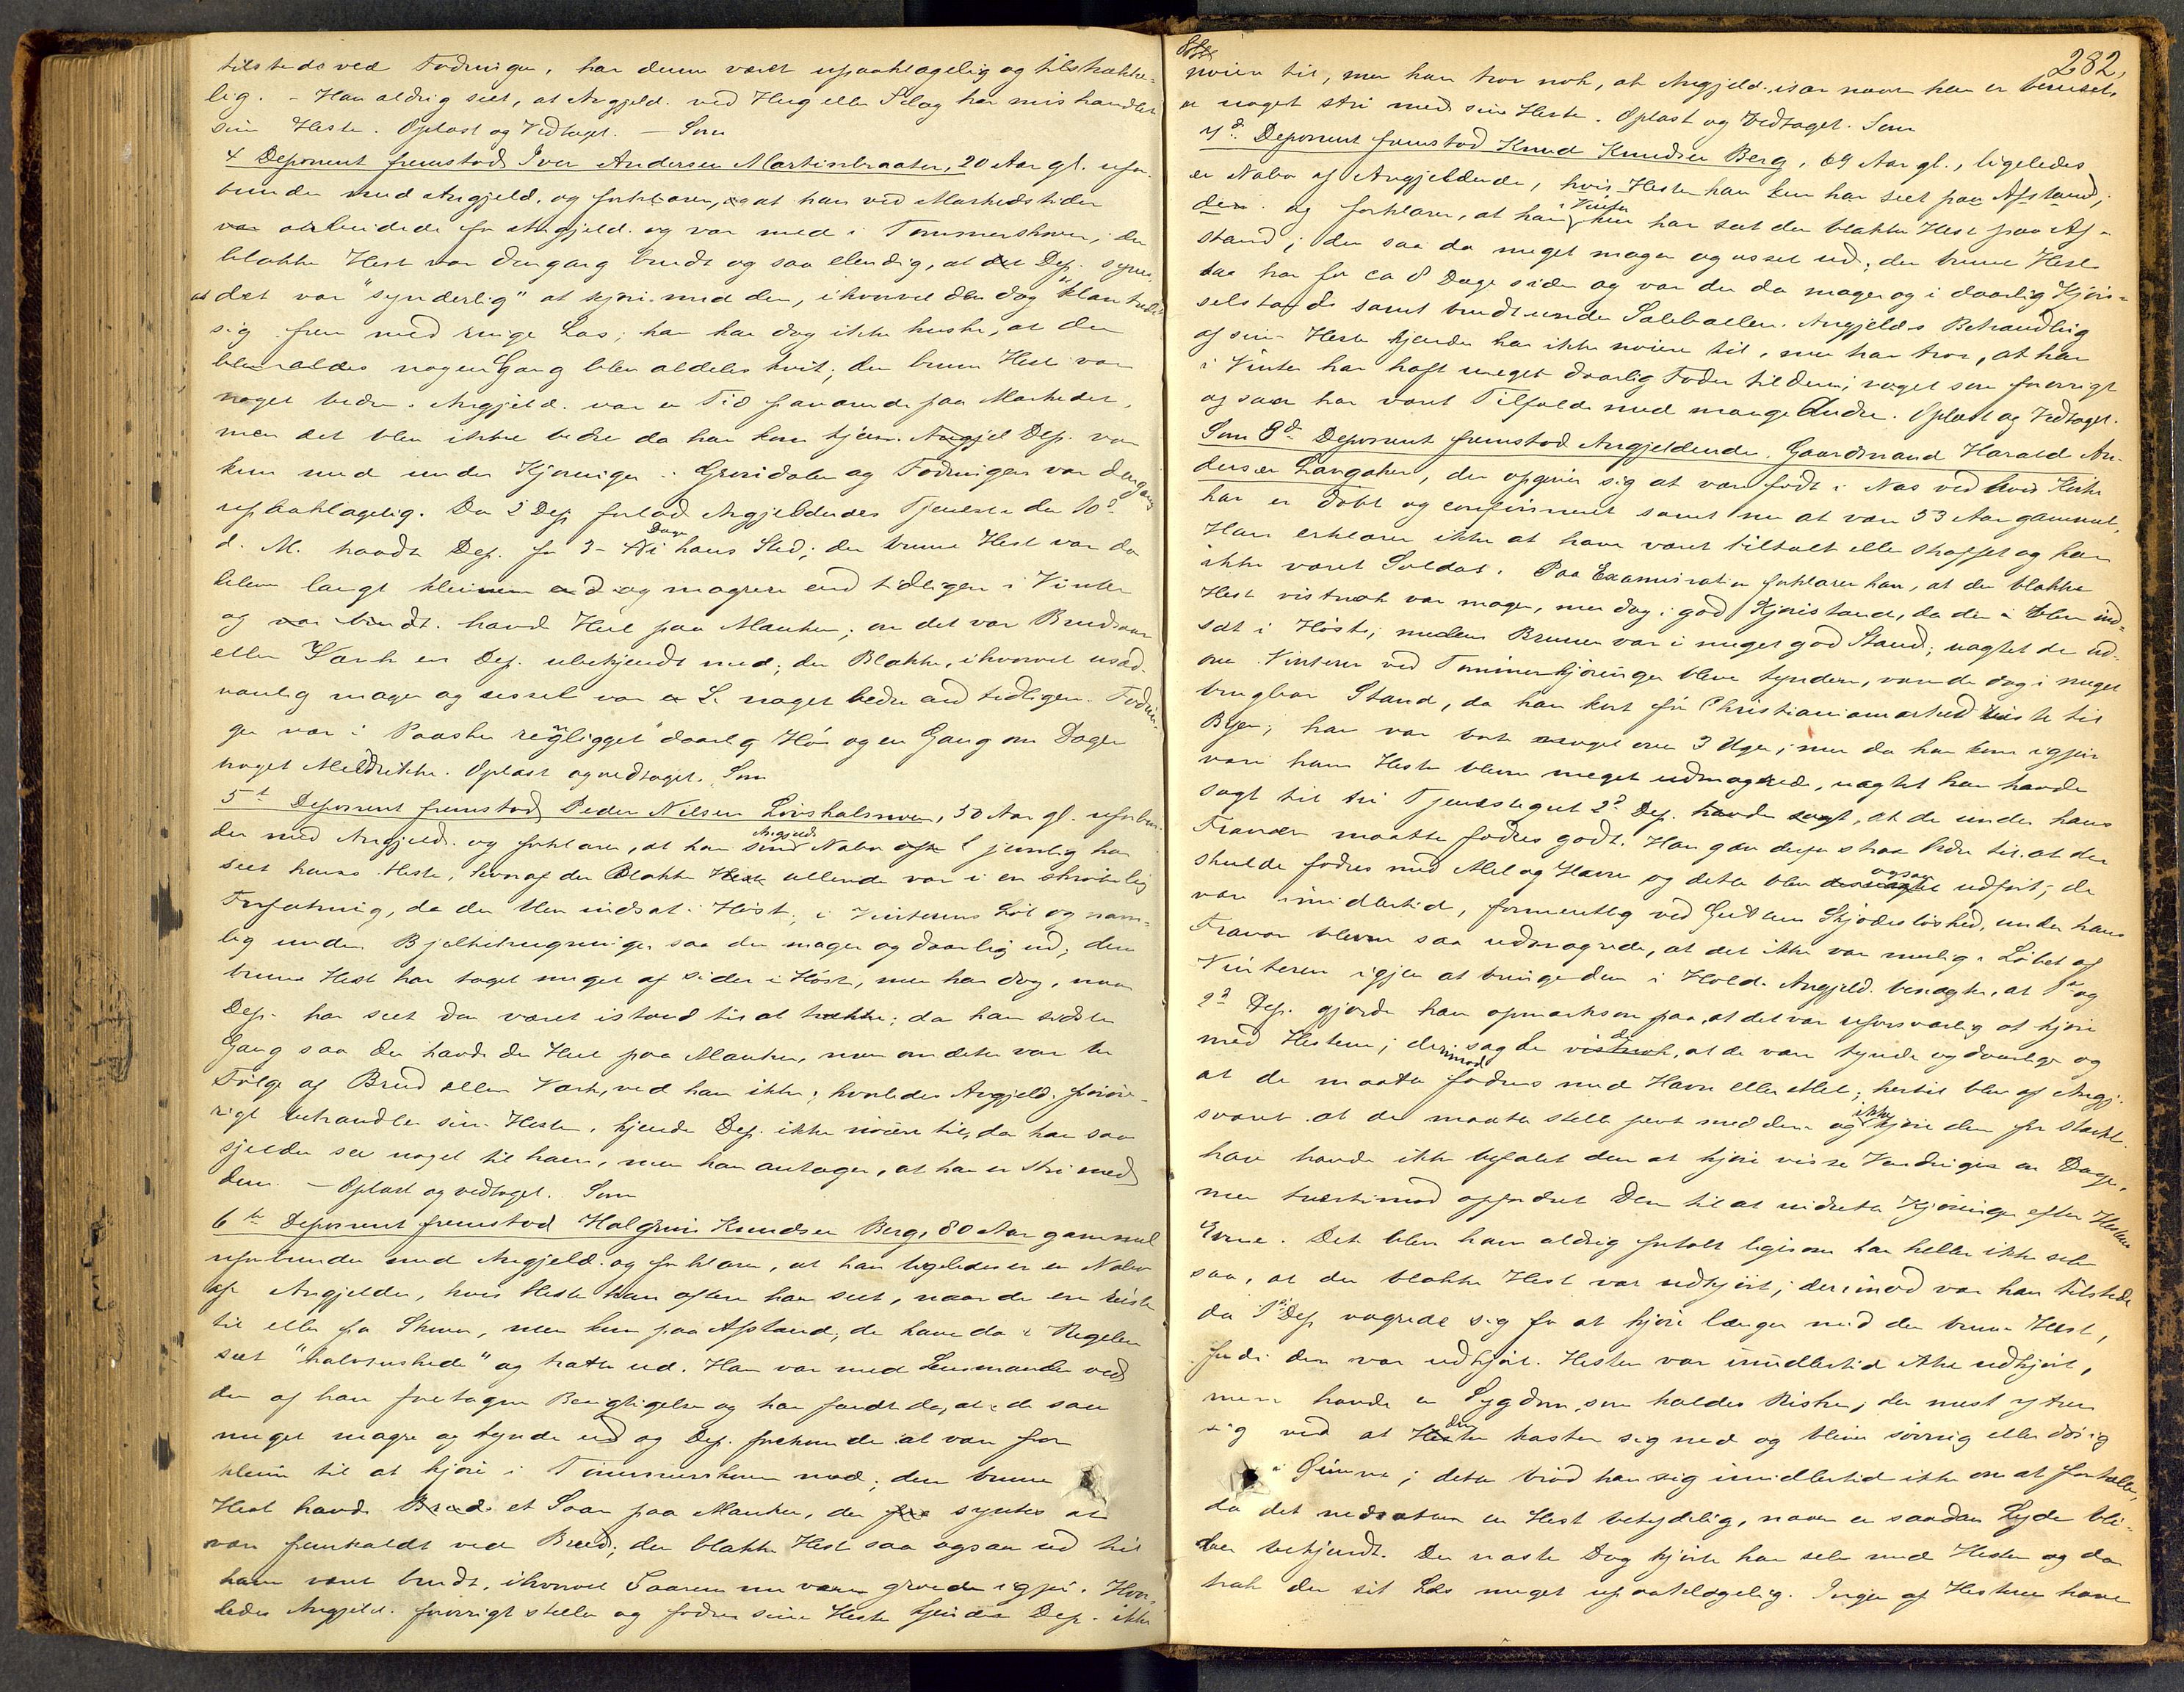 tilstede ved Fodringen, har denne været upaaklagelig og tilstrække-
lig. – Han aldrig seet, at Angjeld. ved Hug eller Slag har mishandlet
sine Heste. Oplæst og Vedtaget. – Som
4 Deponent fremstod Iver Andersen Martinsbraaten, 20 Aar gl. ufor-
bunden med Angjeld. og forklarer, at han ved Markedstiden
arbeidede for Angjeld. og var med i Tømmerskoven; den
blakke Hest var dengang brudt og saa elendig, at Dep. synes
at det var "synderlig" at kjøre med den, ihvorvel den dog "klarte
sig frem med ringe Læs; han kan dog ikke huske, at den
nogen Gang blev aldeles kvit; den brune Hest var
noget bedre. Angjeld. var en Tid fraværende paa Markedet,
men det blev ikke bedre da han kom hjem. Dep. var
kun med under Kjøringen i Grønidalen og Fodringen var dengang
upaaklagelig. Da 2 Dep. forlod Angjeldendes Tjeneste den 10de
d. M. havde Dep. for 3 Dage hans Sted; den brune Hest var da
bleven langt kleinere og magrere end tidligere i Vinter
og havde Hul paa Manken; om det var Brudsaar
eller Værk er Dep. ubekjendt med; den Blakke, ihvorvel usæd-
vanlig mager og ussel var noget bedre end tidligere. Fodrin-
gen var i Paasken regnligget daarlig Hø og en Gang om Dagen
noget Meldrikke. Oplæst og vedtaget. Som
5t Deponent fremstod Peder Nilsen Løvshalsmoen, 50 Aar gl. uforbun-
den med Angjeld. og forklarer, at han som Angjelds Nabo jevnlig har
seet hans Heste, hvoraf den Blakke allerede var i en skrøbelig
Forfatning, da den blev indsat i Høst; i Vinterens Løb og nam-
lig under Bjelketrugningen saa den mager og daarlig ud; den
brune Hest har taget meget af siden i Høst, men har dog, naar
Dep. har seet den været istand til at trække; da han sidste
Gang saa den havde den Hul paa Manken, men om dette var en
Følge af Brud eller Værk, ved han ikke; hvorledes Angjeld. forøv-
rigt behandler sine Heste, kjender Dep. ikke nøiere til, da han saa
sjelden ser noget til ham, men han antager, at han er stri med
dem. – Oplæst og vedtaget. Som
6te Deponent fremstod Halgrim Knudsen Berg, 80 Aar gammel
uforbunden med Angjeld. og forklarer, at han ligeledes er en Nabo
af Angjelden, hvis Heste han oftere har seet, naar de ere reiste
til eller fra Skoven, men kun paa Afstand; de have da i Regelen
seet "halvsuskede" og trætte ud. Han var med Lensmanden ved
den af ham foretagne Besigtigelse og han fandt da, at de saa
meget magre og tynde ud og Dep. forekom de at være for
kleine til at kjøre i Tømmerskoven med; den brune
Hest havde et Saar paa Manken, der syntes at
være fremkaldt ved Brud; den blakke Hest saa ogsaa ud til
have været brudt, ihvorvel Saarene nu vare groede igjen. Hvor-
ledes Angjeld. forøvrigt steller og fodrer sine Heste kjender Dep. ikke
282,
nøiere til, men han tror nok, at Angjeld. især naar han er beruset,
er noget stri med sine Heste. Oplæst og Vedtaget. Som
7de Deponent fremstod Knud Knudsen Berg, 69 Aar gl., ligeledes
en Nabo af Angjeldende, hvis Heste han kun har seet paa Afstand,
og forklarer, at han i Vinter kun har seet den blakke Hest paa Af-
stand; den saa da meget mager og ussel ud; den brune Hest
saa han for ca 8 Dage siden og var den da mager og i daarlig Kjør-
selstand samt brudt under Salebollen. Angjelds Behandling
af sine Heste kjender han ikke nøiere til, men han tror, at han
i Vinter har haft meget daarlig Foder til dem, noget som forøvrigt
ogsaa har været Tilfælde med mange Andre. Oplæst og Vedtaget.
Som 8de Deponent fremstod Angjeldende. Gaardmand Harald An-
dersen Langaker, der opgiver sig at være født i Nes ved hvis Kirke
han er døbt og confirmeret samt nu at være 53 Aar gammel.
Han erklærer ikke at have været tiltalt eller straffet og har
ikke været Soldat. Paa Examination forklarer han, at den blakke
Hest vistnok var mager, men dog i god Kjørstand, da den blev ind-
sat i Høst, medens Brunen var i meget god Stand; uagtet de ud-
over Vinteren ved Tømmerkjøringen bleve tyndere, vare de dog i meget
brugbar Stand, da han kort før Christianiamarked reiste til
Byen; han var bort noget over 3 Uger; men da han kom igjen
vare hans Heste blevne meget udmagrede, uagtet han havde
sagt til sin Tjenestegut 2d Dep. at de under hans
Fravær maatte fodres godt. Han gav desuden Ordre til at de
skulde fodres med Mel og Havre og dette blev ogsaa udført; de
vare imidlertid, formentlig ved Guttens Skjødesløshed, under hans
Fravær blevne saa udmagrede, at det ikke var mulig i Løbet af
Vinteren igjen at bringe dem i Hold. Angjeld. benægter, at 1ste og
2d Dep. gjorde ham opmærksom paa, at det var uforsvarlig at kjøre
med Hestene; derimod sagde de, at de vare tynde og daarlige og
at de maatte fodres med Havre eller Mel; hertil blev af Angj.
svaret at de maatte stelle pent med dem og ikke kjøre dem for stærkt.
han havde ikke befalet dem at kjøre visse Vendinger om Dagen,
men tvertimod opfordret dem til at indrette Kjøringen efter Hestens
Evne. Det blev ham aldrig fortalt ligesom han heller ikke selv
saa, at den blakke Hest var udkjørt; derimod var han tilstede
da 1ste Dep. vægrede sig for at kjøre længer med den brune Hest,
fordi den var udkjørt. Hesten var imidlertid ikke udkjørt,
men havde en Sygdom, som kaldes Risken, der mest yttrer
sig ved at den kaster sig ned og bliver søvnig eller døsig
i Øinene; dette brød han sig imidlertid ikke om at fortælle,
da det nedsætter en Hest betydelig, naar en saadan Lyde bli-
ver bekjendt. Den næste Dag kjørte han selv med Hesten og da
trak den sit Læs meget upaaklagelig. Ingen af Hestene have